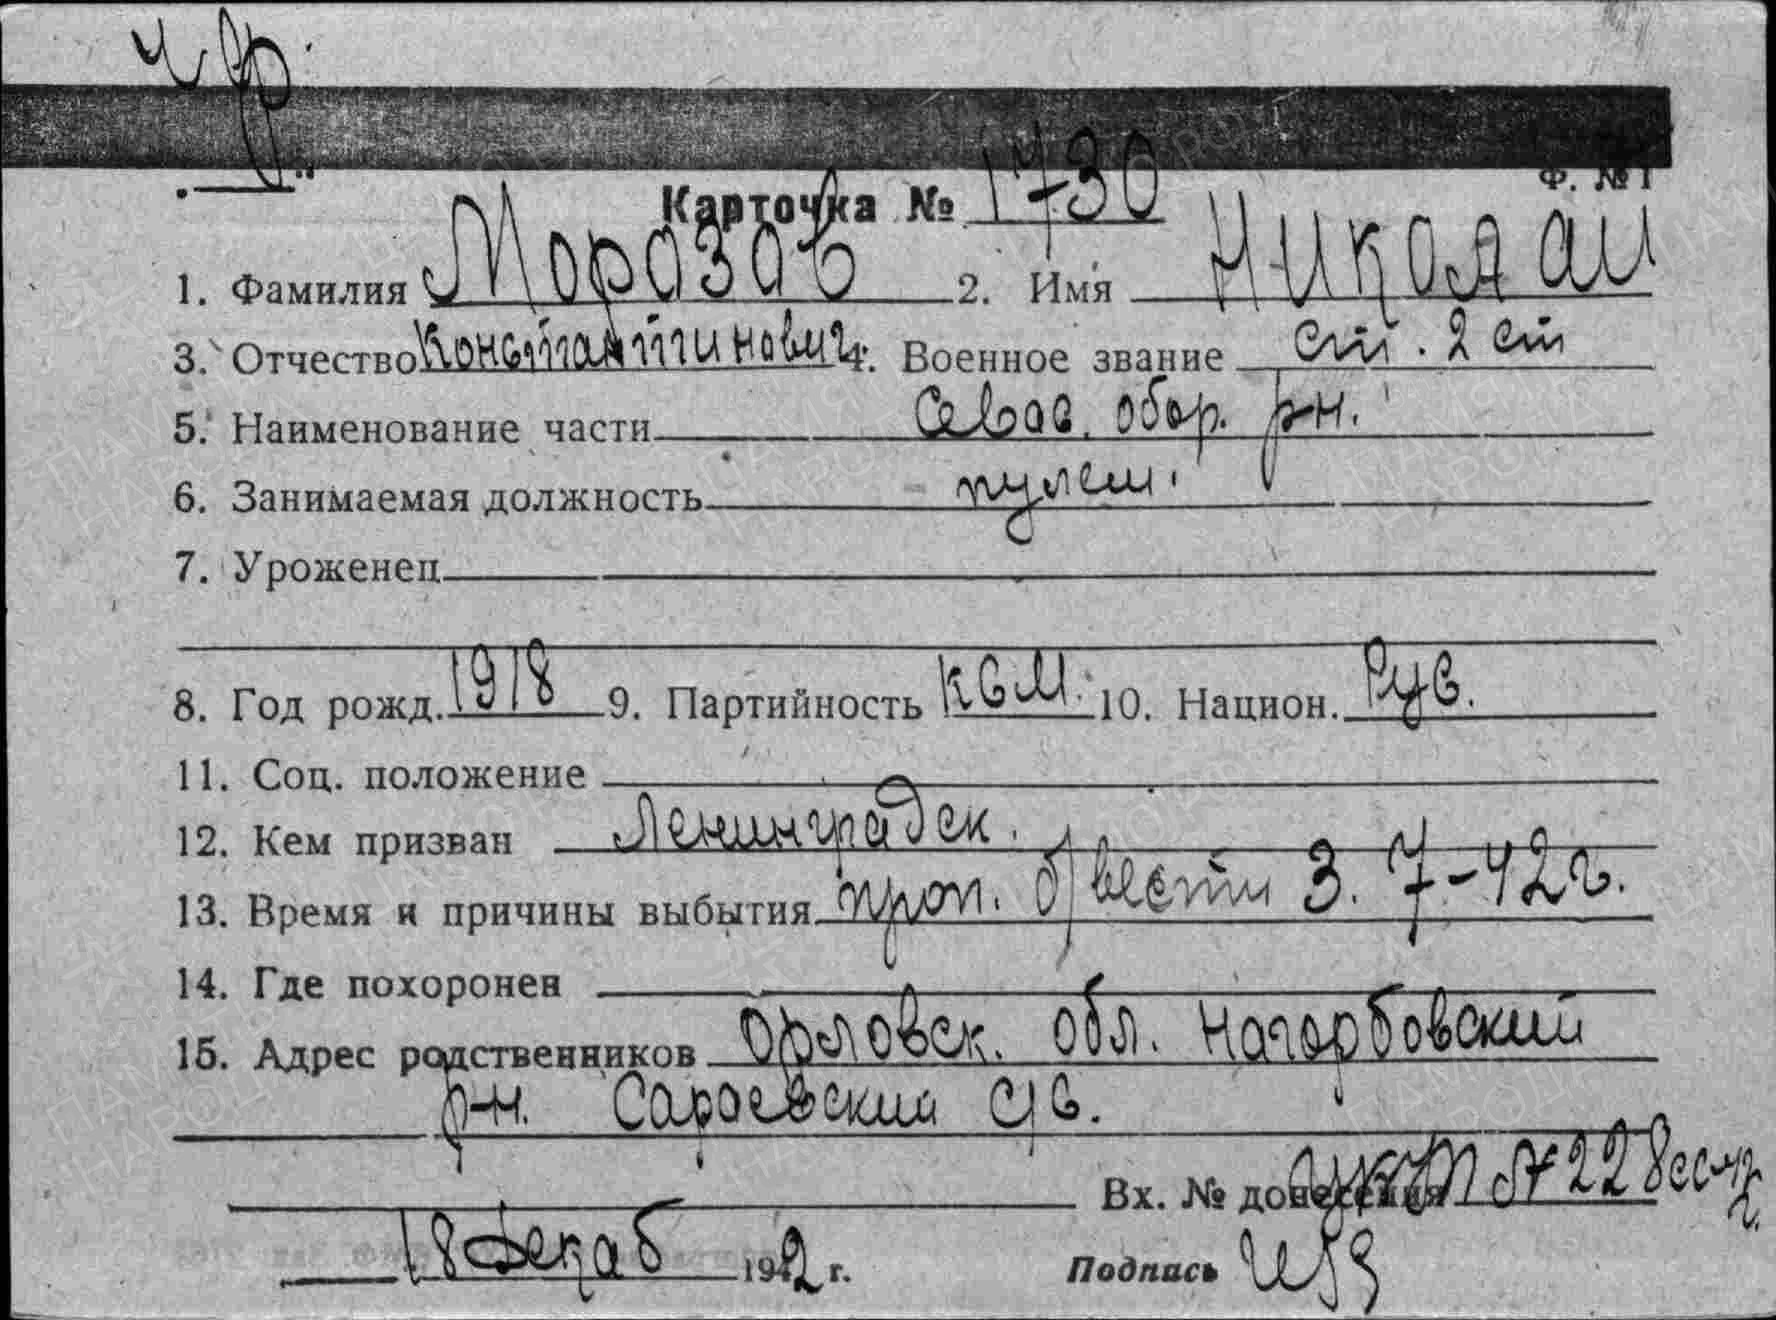 Ф. № 1
Карточка № 1730
1. Фамилия Морозов 2. Имя Николай
3. Отчество Константинович 4. Военное звание ст. 2 ст
5. Наименование части Севас. обор. р-н.
6. Занимаемая должность пулем.
7. Уроженец
8. Год рожд. 1918 9. Партийность КСМ. 10. Национ. Рус.
11. Соц. положение
12. Кем призван Ленинградск.
13. Время и причины выбытия проп. б/вести 3.7-42г.
14. Где похоронен
15. Адрес родственников Орловск. обл.
р-н. Сараевский с/с.
Вх. № донесения № 228сс-42г.
18 декаб 1942 г. Подпись